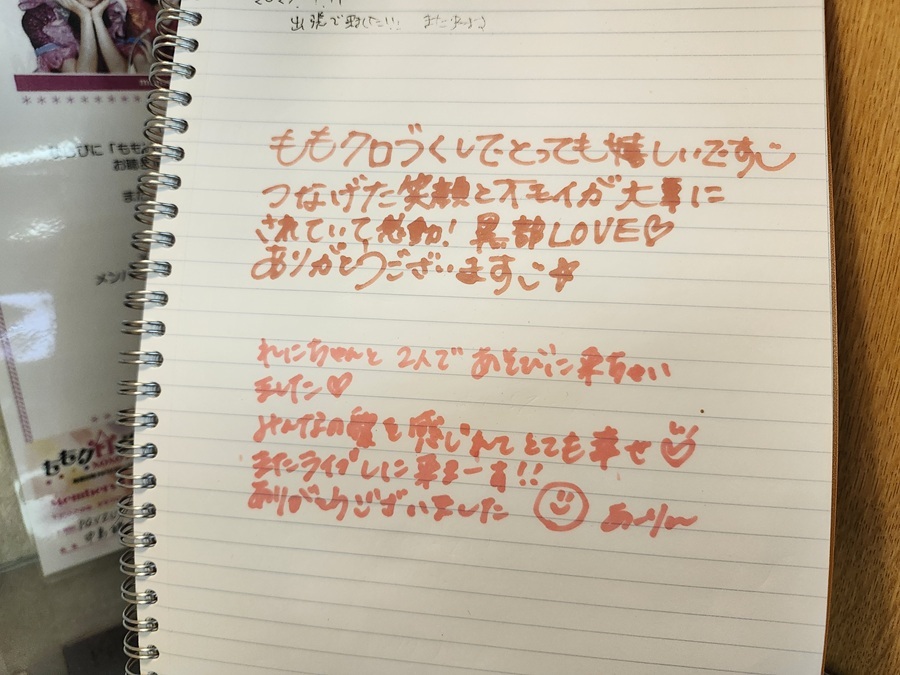 出張で来ました!! また来ます
ももクロづくしでとっても嬉しいです
つなげた笑顔とオモイが大事に
されていて感動! 黒部LOVE♡
ありがとうございます☆
れにちゃんと2人であそびに来ちゃい
ました♡
みんなの愛も感じれてとても幸せ♡
またライブしに来まーす!!
ありがとうございました あーりん
ももク
Members
メンバ
お聴